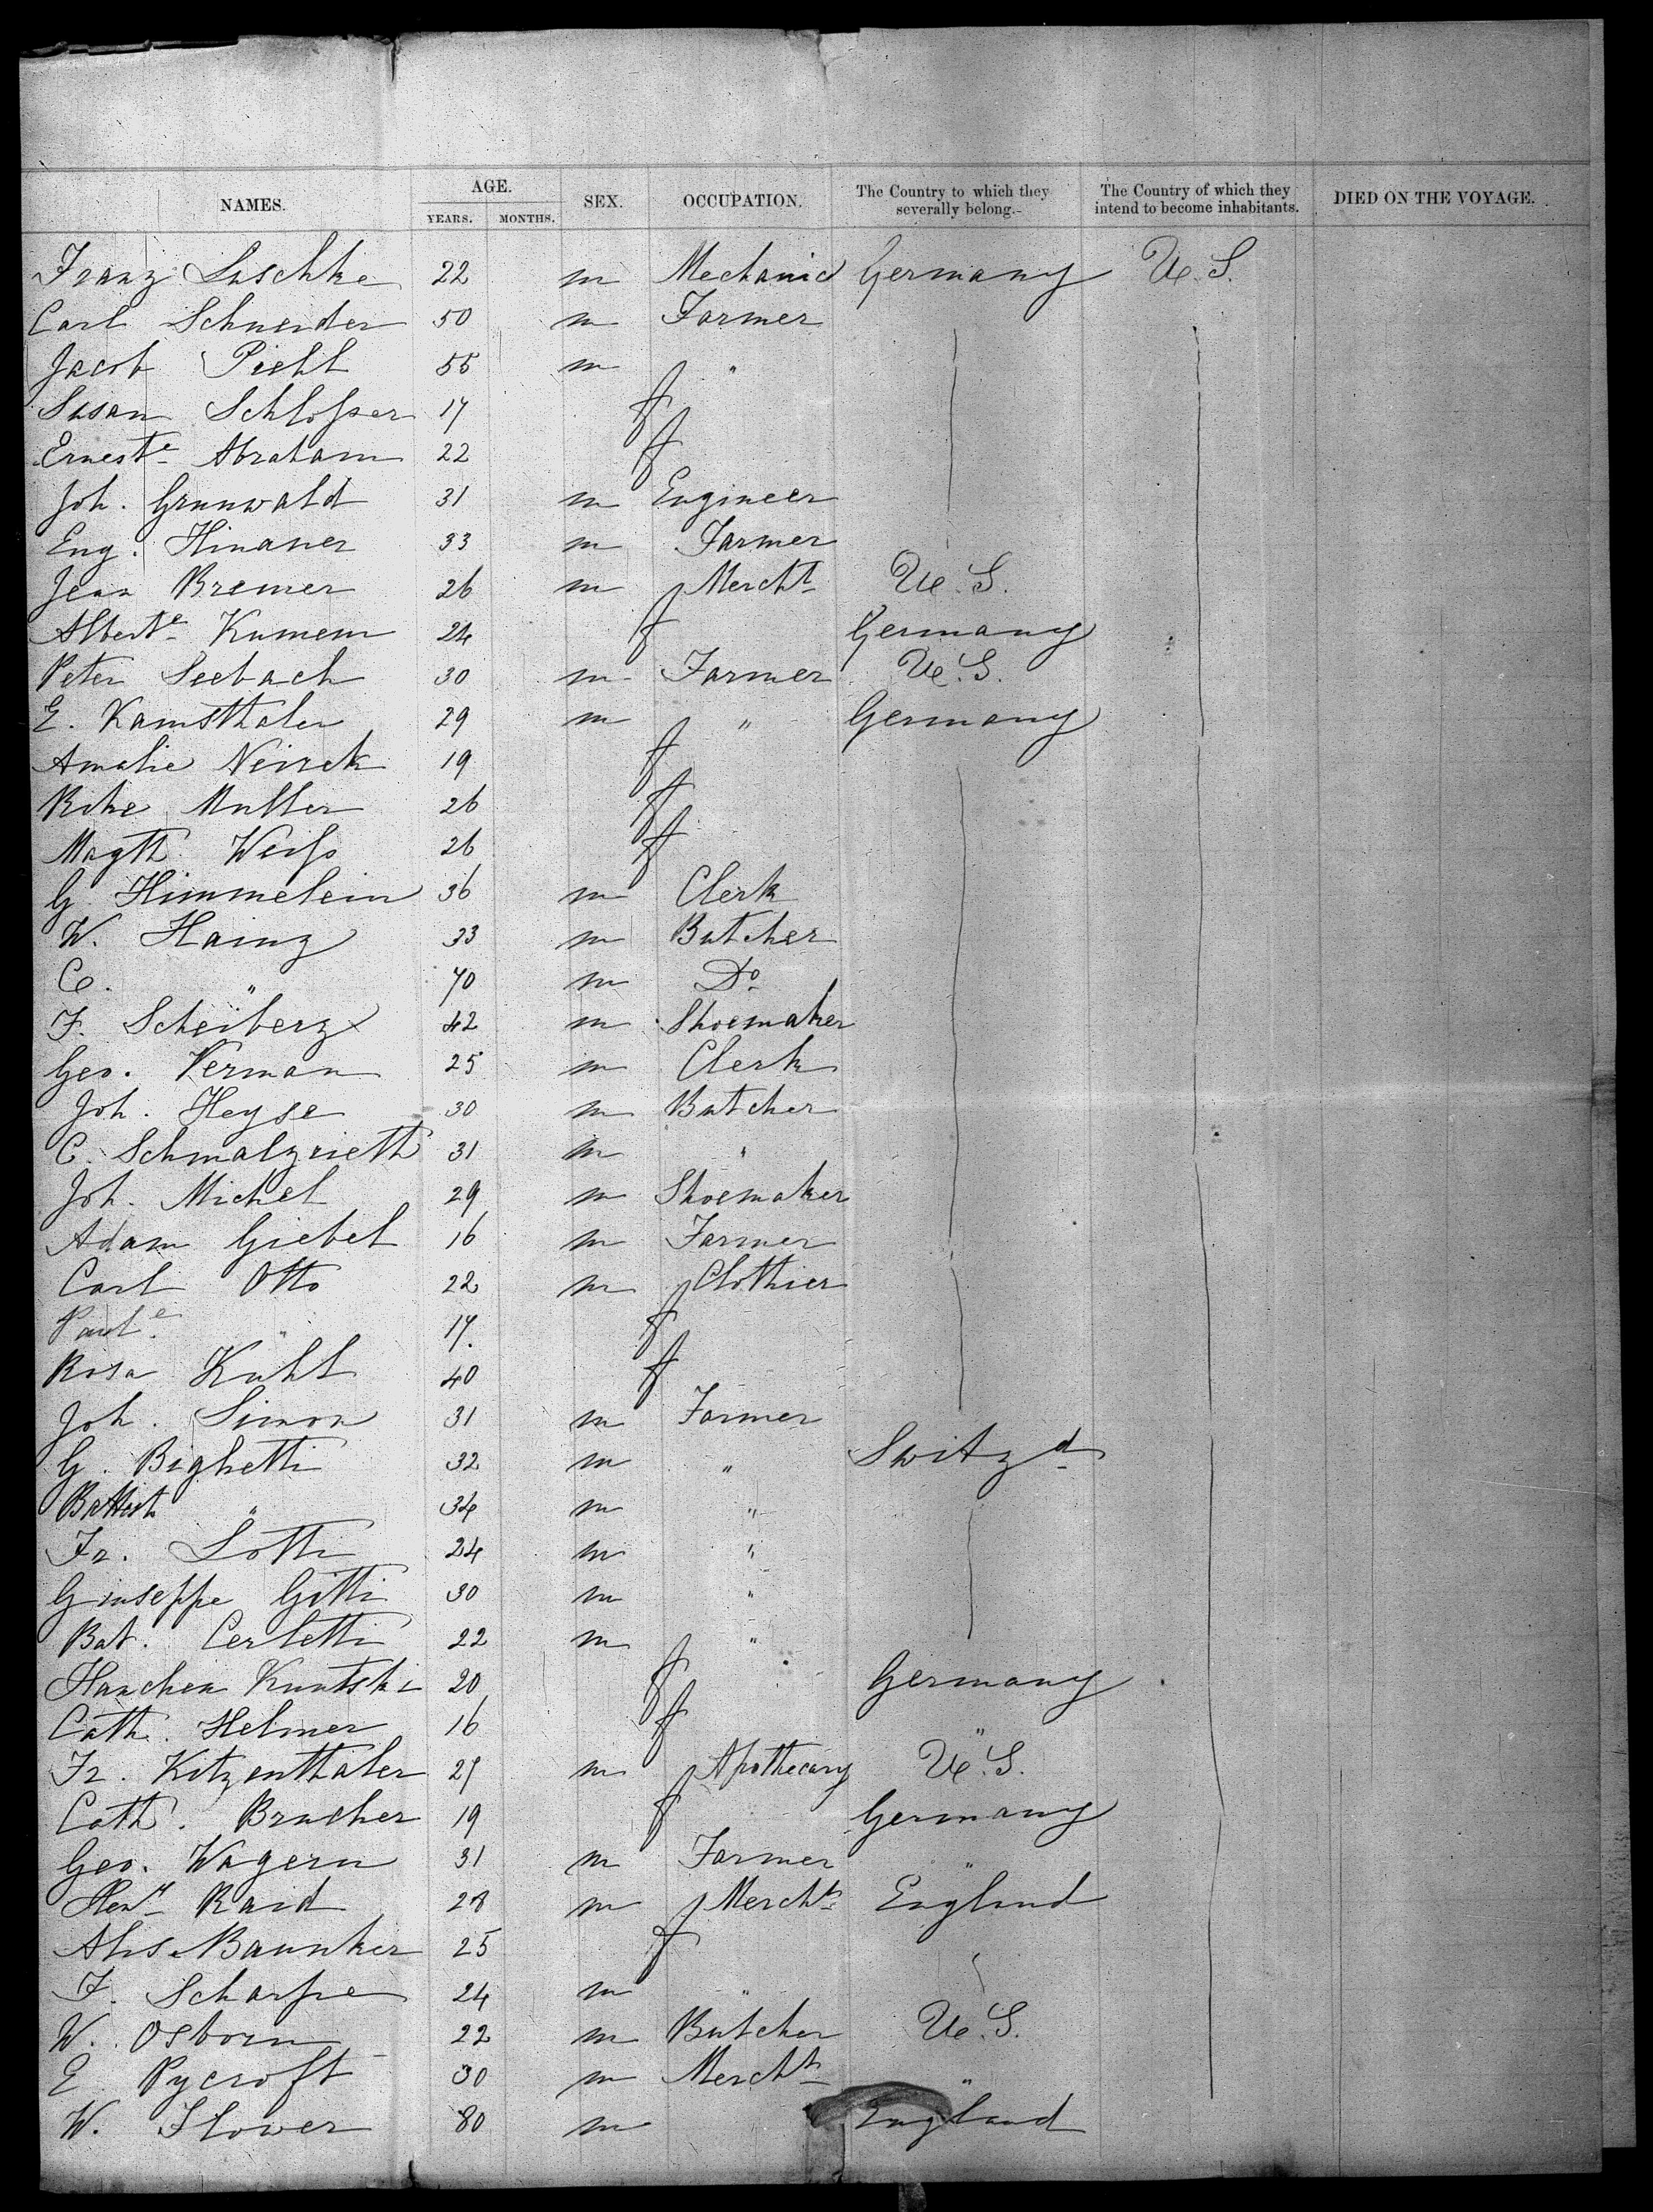 NAMES. AGE. YEARS. MONTHS. SEX. OCCUPATION. The Country to which they severally belong. The Country of which they intend to become inhabitants. DIED ON THE VOYAGE.
Franz Luschke 22 m Mechanic Germany U.S.
Carl Schneider 50 m Farmer
Jacob Piehl 55 m "
Susan Schlosser 17 f
Ernest<sup>e</sup> Abraham 22 f
Joh. Grunwald 31 m Engineer
Eug. Hinaner 33 m Farmer
Jean Bremer 26 m Mercht U.S.
Albert<sup>e</sup> Kumem 24 f Germany
Peter Seebach 30 m Farmer U.S.
E. Kamsthaler 29 m " Germany
Amalie Neirek 19 f
Rike Muller 26 f
Magth. Weiss 26 f
G. Himmelein 36 m Clerk
W. Hainz 33 m Butcher
C. " 70 m Do
F. Scheiberz 42 m Shoemaker
Geo. Verman 25 m Clerk
Joh. Heyse 30 m Butcher
C. Schmalzrieth 31 m "
Joh. Michel 29 m Shoemaker
Adam Giebel 16 m Farmer
Carl Otto 22 m Clothier
Paul<sup>e</sup> " 17. f
Rosa Kuhl 40 f
Joh. Simon 31 m Farmer
G. Bighetti 32 m " Switzd
Battist " 34 m "
Fr. Lotti 24 m "
Giuseppe Gitti 30 m "
Bat. Cerletti 22 m "
Hanchen Kuntski 20 f Germany
Cath. Helmer 16 f "
Fr. Kitzenthaler 29 m Apothecary U.S.
Cath. Brucher 19 f Germany
Geo. Wagern 31 m Farmer "
Heny Raid 28 m Mercht England
Als. Baunker 25 f
F. Scharpe 24 m "
W. Osborn 22 m Butcher U.S.
E. Pycroft 30 m Mercht "
W. Flower 80 m England